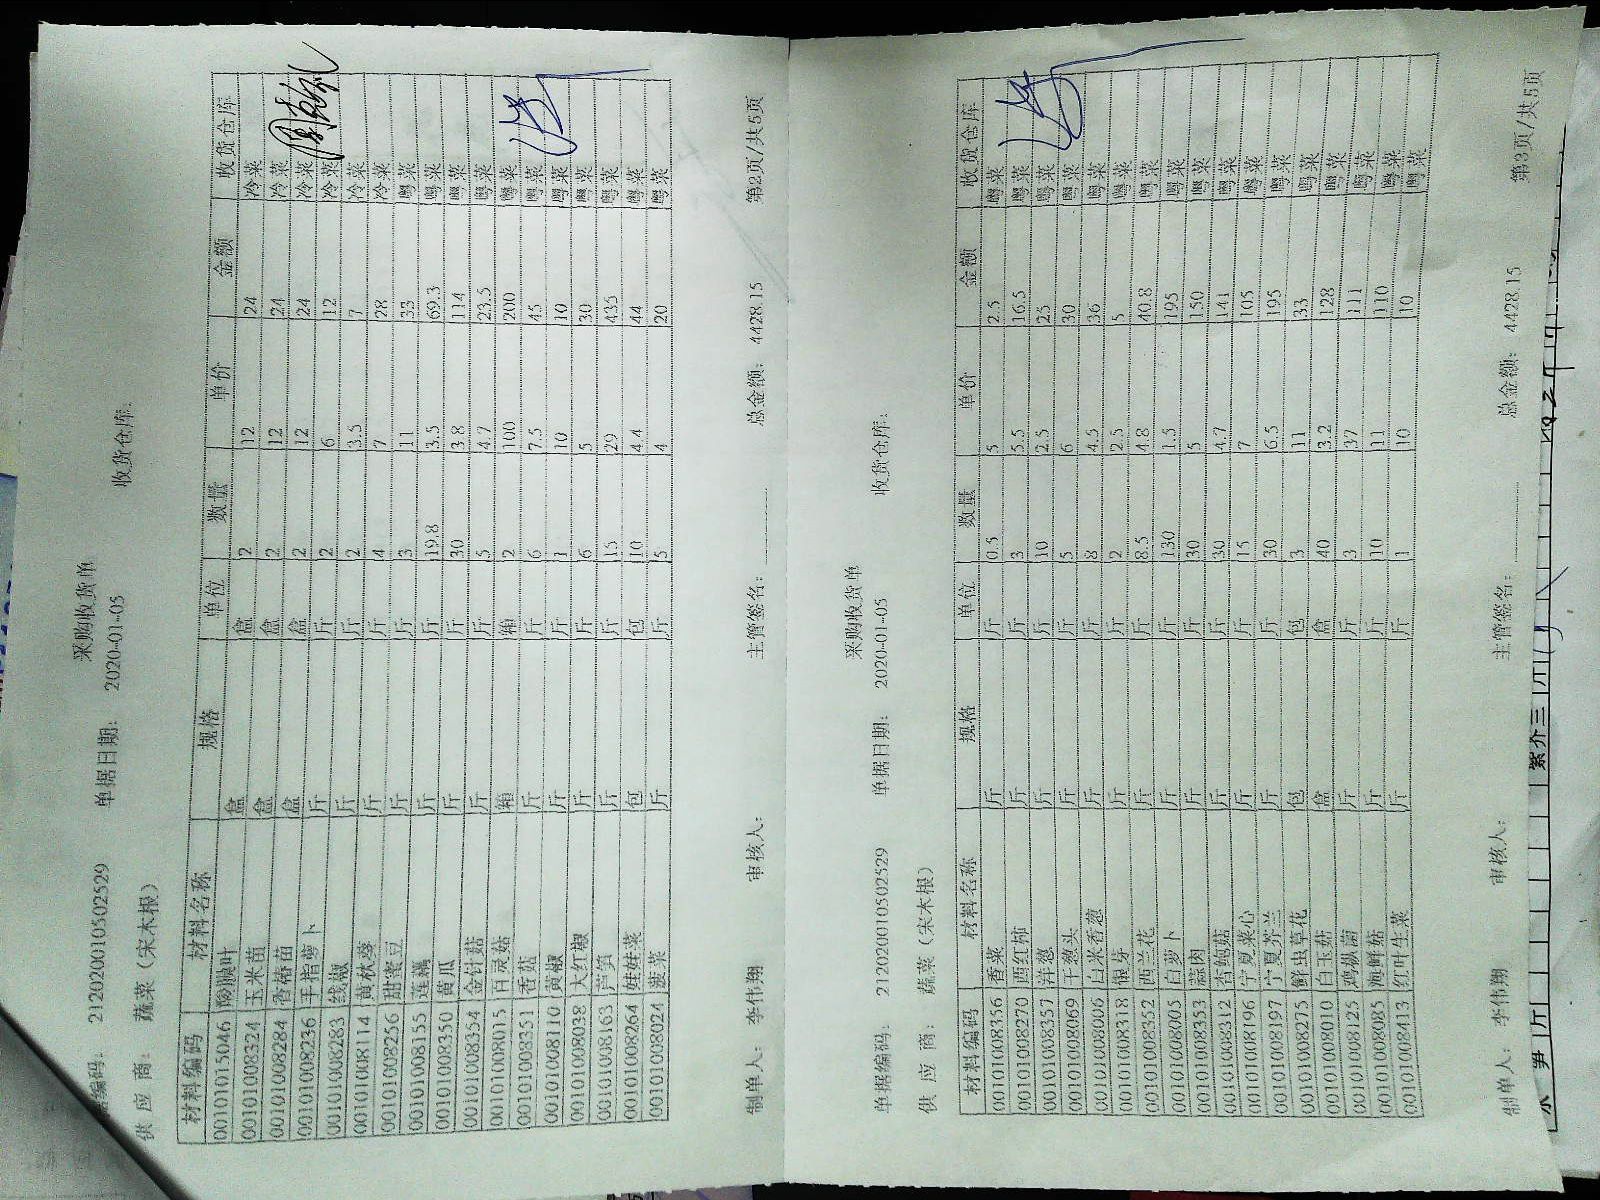 采购收货单
据编码: 212020010502529 单据日期: 2020-01-05 收货仓库:
供 应 商: 蔬菜(宋木根)
材料编码 材料名称 规格 单位 数量 单价 金额 收货仓库
00101015046 酸膜叶 盒 盒 2 12 24 冷菜
00101008324 玉米苗 盒 盒 2 12 24 冷菜
00101008284 香椿苗 盒 盒 2 12 24 冷菜
00101008236 手指萝卜 斤 斤 2 6 12 冷菜
00101008283 线椒 斤 斤 2 3.5 7 冷菜
00101008114 黄秋葵 斤 斤 4 7 28 冷菜
00101008256 甜蜜豆 斤 斤 3 11 33 粤菜
00101008155 莲藕 斤 斤 19.8 3.5 69.3 粤菜
00101008350 黄瓜 斤 斤 30 3.8 114 粤菜
00101008354 金针菇 斤 斤 5 4.7 23.5 粤菜
00101008015 百灵菇 箱 箱 2 100 200 粤菜
00101008351 香菇 斤 斤 6 7.5 45 粤菜
00101008110 黄椒 斤 斤 1 10 10 粤菜
00101008038 大红椒 斤 斤 6 5 30 粤菜
00101008163 芦笋 斤 斤 15 29 435 粤菜
00101008264 娃娃菜 包 包 10 4.4 44 粤菜
00101008024 菠菜 斤 斤 5 4 20 粤菜
制单人: 李伟翔 审核人: 主管签名: 总金额: 4428.15 第2页/共5页
采购收货单
单据编码: 212020010502529 单据日期: 2020-01-05 收货仓库:
供 应 商: 蔬菜(宋木根)
材料编码 材料名称 规格 单位 数量 单价 金额 收货仓库
00101008356 香菜 斤 斤 0.5 5 2.5 粤菜
00101008270 西红柿 斤 斤 3 5.5 16.5 粤菜
00101008357 洋葱 斤 斤 10 2.5 25 粤菜
00101008069 干葱头 斤 斤 5 6 30 粤菜
00101008006 白米香葱 斤 斤 8 4.5 36 粤菜
00101008318 银芽 斤 斤 2 2.5 5 粤菜
00101008352 西兰花 斤 斤 8.5 4.8 40.8 粤菜
00101008005 白萝卜 斤 斤 130 1.5 195 粤菜
00101008353 蒜肉 斤 斤 30 5 150 粤菜
00101008312 杏鲍菇 斤 斤 30 4.7 141 粤菜
00101008196 宁夏菜心 斤 斤 15 7 105 粤菜
00101008197 宁夏芥兰 斤 斤 30 6.5 195 粤菜
00101008275 鲜虫草花 包 包 3 11 33 粤菜
00101008010 白玉菇 盒 盒 40 3.2 128 粤菜
00101008125 鸡枞菌 斤 斤 3 37 111 粤菜
00101008085 海鲜菇 斤 斤 10 11 110 粤菜
00101008413 红叶生菜 斤 斤 1 10 10 粤菜
制单人: 李伟翔 审核人: 主管签名: 总金额: 4428.15 第3页/共5页